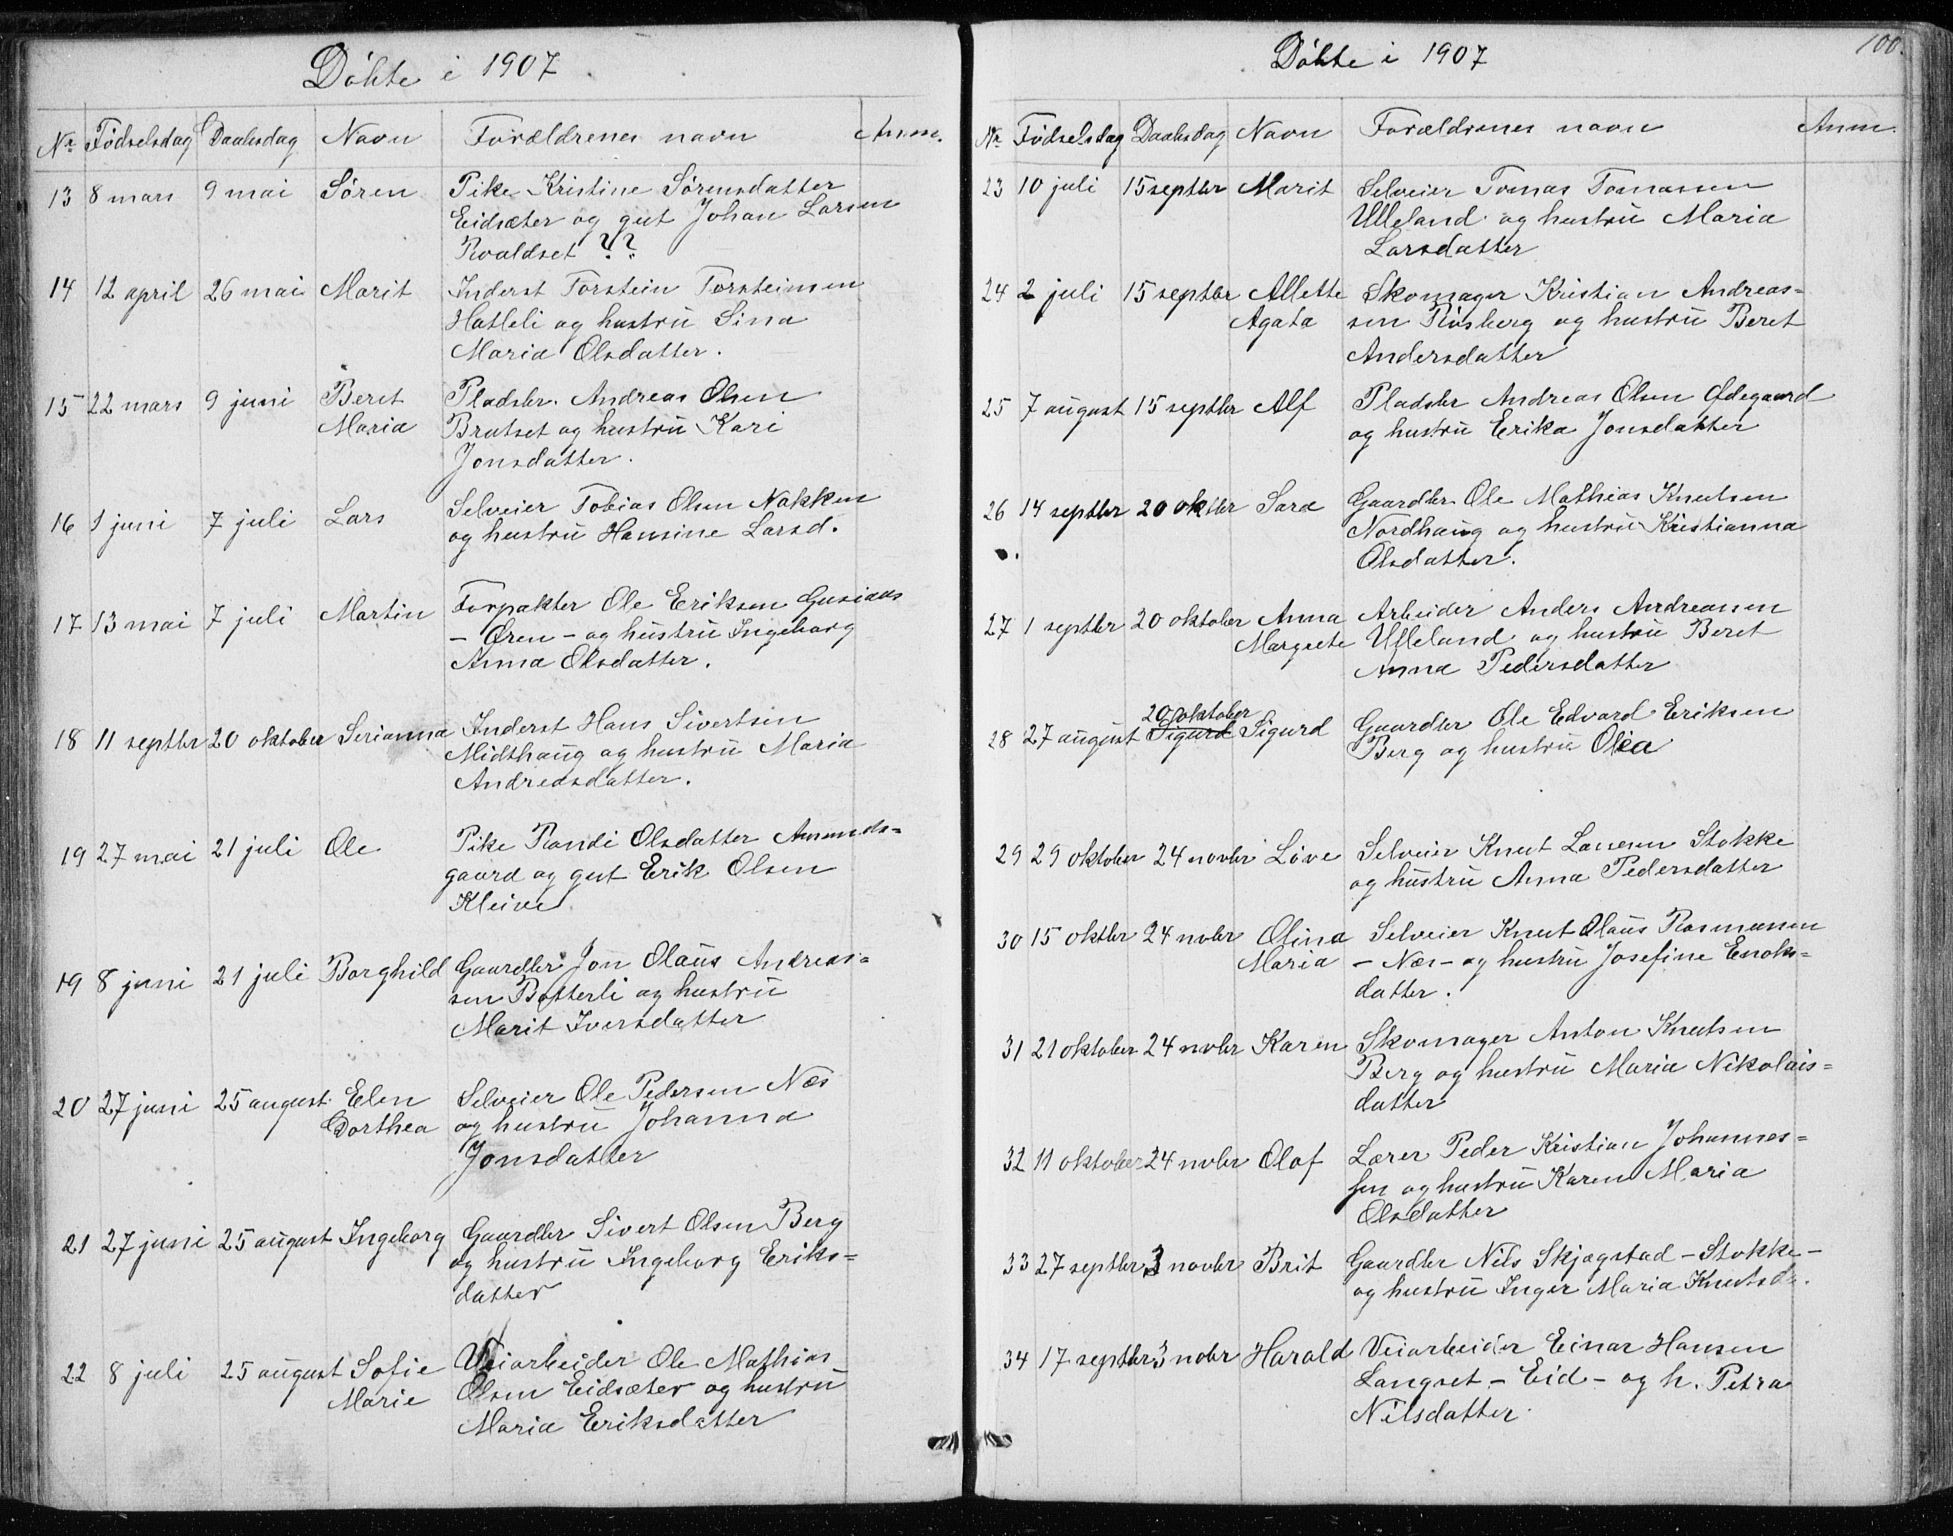 Döbte i 1907
Nr Fødselsdag Daabsdag Navn Forældrenes navn Anm.
13 8 mars 9 mai Sören Pike Kristine Sörensdatter
Eidsæter og gut Johan Larsen
Roaldset ??
14 12 april 26 mai Marit Inderst Torstein Torsteinsen
Hatleli og hustru Sina
Maria Olsdatter.
15 22 mars 9 juni Beret Pladsbr. Andreas Olsen
Maria Brutset og hustru Kari
Jonsdatter.
16 1 juni 7 juli Lars Selveier Tobias Olsen Nakken
og hustru Hansine Larsd.
17 13 mai 7 juli Martin Forpakter Ole Eriksen Gusiaas
- Øren - og hustru Ingeborg
Anna Olsdatter.
18 11 septbr 20 oktober Serianna Inderst Hans Sivertsen
Midthaug og hustru Maria
Andreasdatter.
19 27 mai 21 juli Ole Pike Randi Olsdatter Amunds=
gaard og gut Erik Olsen
Kleive
19 8 juni 21 juli Borghild Gaardbr Jon Olaus Andreas=
sen Botterli og hustru
Marit Iversdatter
20 27 juni 25 august Elen Selveier Ole Pedersen Næs
Dorthea og hustru Johanna
Jonsdatter
21 27 juni 25 august Ingeborg Gaardbr Sivert Olsen Berg
og hustru Ingeborg Eriks=
datter
22 8 juli 25 august Sofie Veiarbeider Ole Mathias
Marie Olsen Eidsæter og hustru
Maria Eriksdatter
100.
Döbte i 1907
Nr Fødselsdag Daabsdag Navn Forældrenes navn Anm.
23 10 juli 15 septbr Marit Selveier Tomas Tomassen
Ulleland og hustru Maria
Larsdatter
24 2 juli 15 septbr Allette Skomager Kristian Andreas=
Agata sen Rösberg og hustru Beret
Andersdatter
25 7 august 15 septbr Alf Pladsbr Andreas Olsen Ødegaard
og hustru Erika Jonsdatter
26 14 septbr 20 oktbr Sara Gaardbr Ole Mathias Knutsen
Nordhaug og hustru Kristianna
Olsdatter.
27 1 septbr 20 oktober Anna Arbeider Anders Andreassen
Margrete Ulleland og hustru Beret
Anna Pedersdatter
20 oktober
28 27 august Sigurd Sigurd Gaardbr Ole Edvard Eriksen
Berg og hustru Olea
29 29 oktober 24 novbr Löve Selveier Knut Larsen Stokke
og hustru Anna Pedersdatter
30 15 oktbr 24 novbr Olina Selveier Knut Olaus Rasmussen
Maria - Næs - og hustru Josefine Enoks=
datter.
31 21 oktober 24 novbr Karen Skomager Anton Knutsen
Berg og hustru Maria Nikolais=
datter
32 11 oktober 24 novbr Olaf Lærer Peder Kristian Johannes=
sen og hustru Karen Maria
Olsdatter
33 27 septbr 3 novbr Brit Gaardbr Nils Skjægstad - Stokke -
og hustru Inger Maria Knutsd.
34 17 septbr 3 nobr Harald Veiarbeider Einar Hansen
Langset - Eid - og h. Petra
Nilsdatter